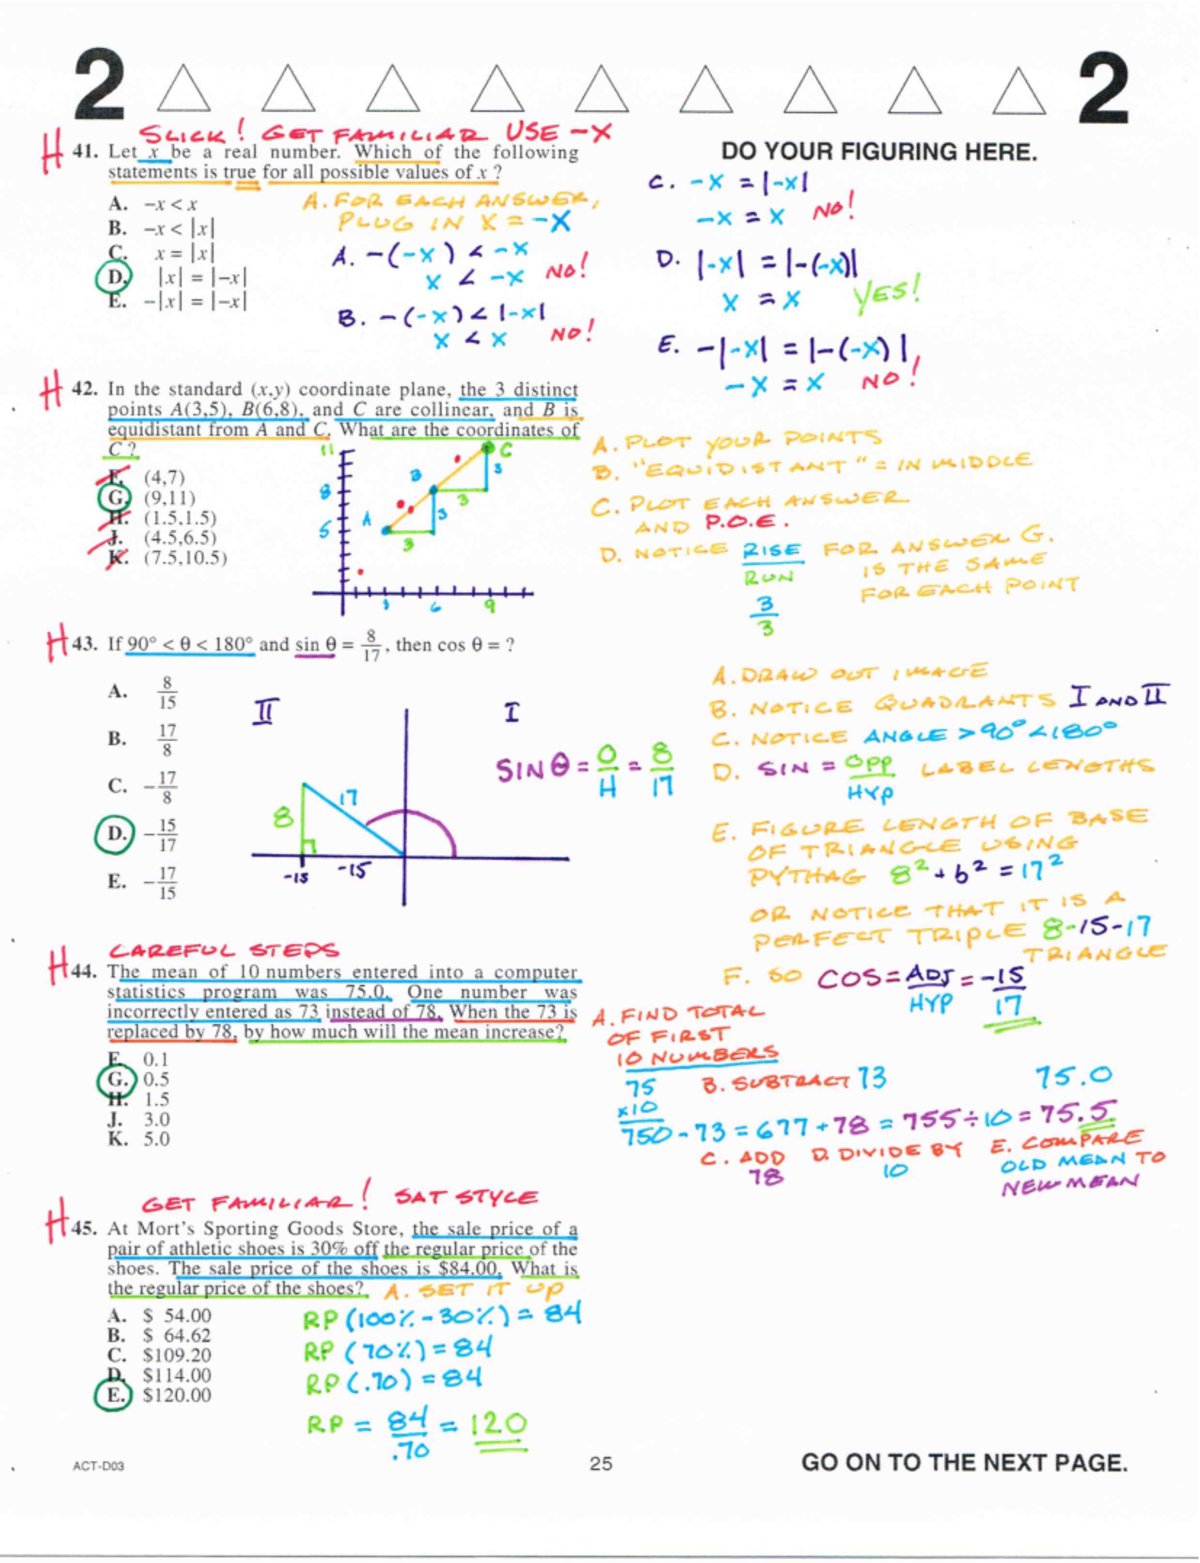 2 2
SLICK! GET FAMILIAR USE -X
H 41. Let x be a real number. Which of the following
statements is true for all possible values of x ?
A. −x < x
B. −x < |x|
C. x = |x|
D. |x| = |−x|
E. −|x| = |−x|
A. FOR EACH ANSWER,
PLUG IN X = -X
A. -(-x) < -x
x < -x NO!
B. -(-x) < |-x|
x < x NO!
DO YOUR FIGURING HERE.
C. -x = |-x|
-x = x NO!
D. |-x| = |-(-x)|
x = x YES!
E. -|-x| = |-(-x)|
-x = x NO!
H 42. In the standard (x,y) coordinate plane, the 3 distinct
points A(3,5), B(6,8), and C are collinear, and B is
equidistant from A and C. What are the coordinates of
C ?
F. (4,7)
G. (9,11)
H. (1.5,1.5)
J. (4.5,6.5)
K. (7.5,10.5)
11 C
8 B 3
3
5 A 3
3
3 6 9
A. PLOT YOUR POINTS
B. "EQUIDISTANT" = IN MIDDLE
C. PLOT EACH ANSWER
AND P.O.E.
D. NOTICE RISE/RUN FOR ANSWER G.
IS THE SAME
FOR EACH POINT
3/3
H 43. If 90° < θ < 180° and sin θ = 8/17, then cos θ = ?
A. 8/15
B. 17/8
C. −17/8
D. −15/17
E. −17/15
II I
17
8
-15 -15
SIN θ = O/H = 8/17
A. DRAW OUT IMAGE
B. NOTICE QUADRANTS I AND II
C. NOTICE ANGLE > 90° < 180°
D. SIN = OPP/HYP LABEL LENGTHS
E. FIGURE LENGTH OF BASE
OF TRIANGLE USING
PYTHAG 8² + b² = 17²
OR NOTICE THAT IT IS A
PERFECT TRIPLE 8-15-17
TRIANGLE
F. SO COS = ADJ/HYP = -15/17
CAREFUL STEPS
H 44. The mean of 10 numbers entered into a computer
statistics program was 75.0. One number was
incorrectly entered as 73 instead of 78. When the 73 is
replaced by 78, by how much will the mean increase?
F. 0.1
G. 0.5
H. 1.5
J. 3.0
K. 5.0
A. FIND TOTAL
OF FIRST
10 NUMBERS
75 B. SUBTRACT 73 75.0
x10
750 - 73 = 677 + 78 = 755 ÷ 10 = 75.5
C. ADD D. DIVIDE BY E. COMPARE
78 10 OLD MEAN TO
NEW MEAN
GET FAMILIAR! SAT STYLE
H 45. At Mort's Sporting Goods Store, the sale price of a
pair of athletic shoes is 30% off the regular price of the
shoes. The sale price of the shoes is $84.00. What is
the regular price of the shoes? A. SET IT UP
A. $ 54.00
B. $ 64.62
C. $109.20
D. $114.00
E. $120.00
RP (100% - 30%) = 84
RP (70%) = 84
RP (.70) = 84
RP = 84/.70 = 120
ACT-D03 25 GO ON TO THE NEXT PAGE.